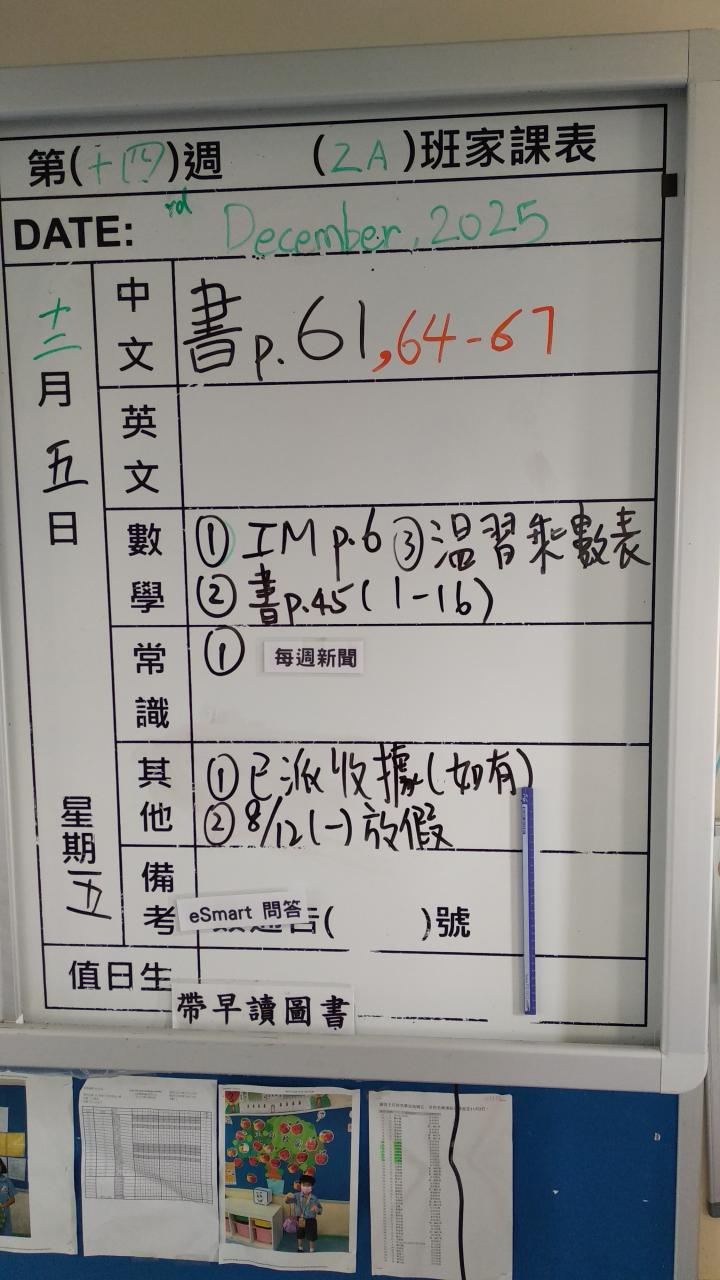 第(十四)週 (2A)班家課表
DATE: rd December, 2025
十二月五日 星期五
中文 書p.61,64-67
英文
數學 ① IM p.6 ③ 溫習乘數表
② 書p.45(1-16)
常識 ① 每週新聞
其他 ① 已派收據(如有)
② 8/12(一)放假
備考 eSmart 問答 ( )號
值日生
帶早讀圖書